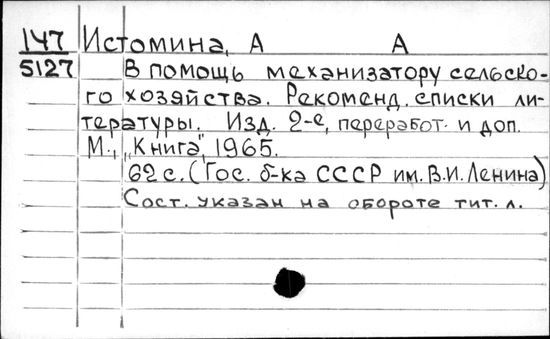 147 Истомина, А А
5127 В помощь механизатору сельско-
го хозяйства. Рекоменд. списки ли-
тературы. Изд. 2-е, переработ. и доп.
М., "Книга", 1965.
62 с. (Гос. б-ка СССР им. В.И. Ленина)
Сост. указан на обороте тит. л.